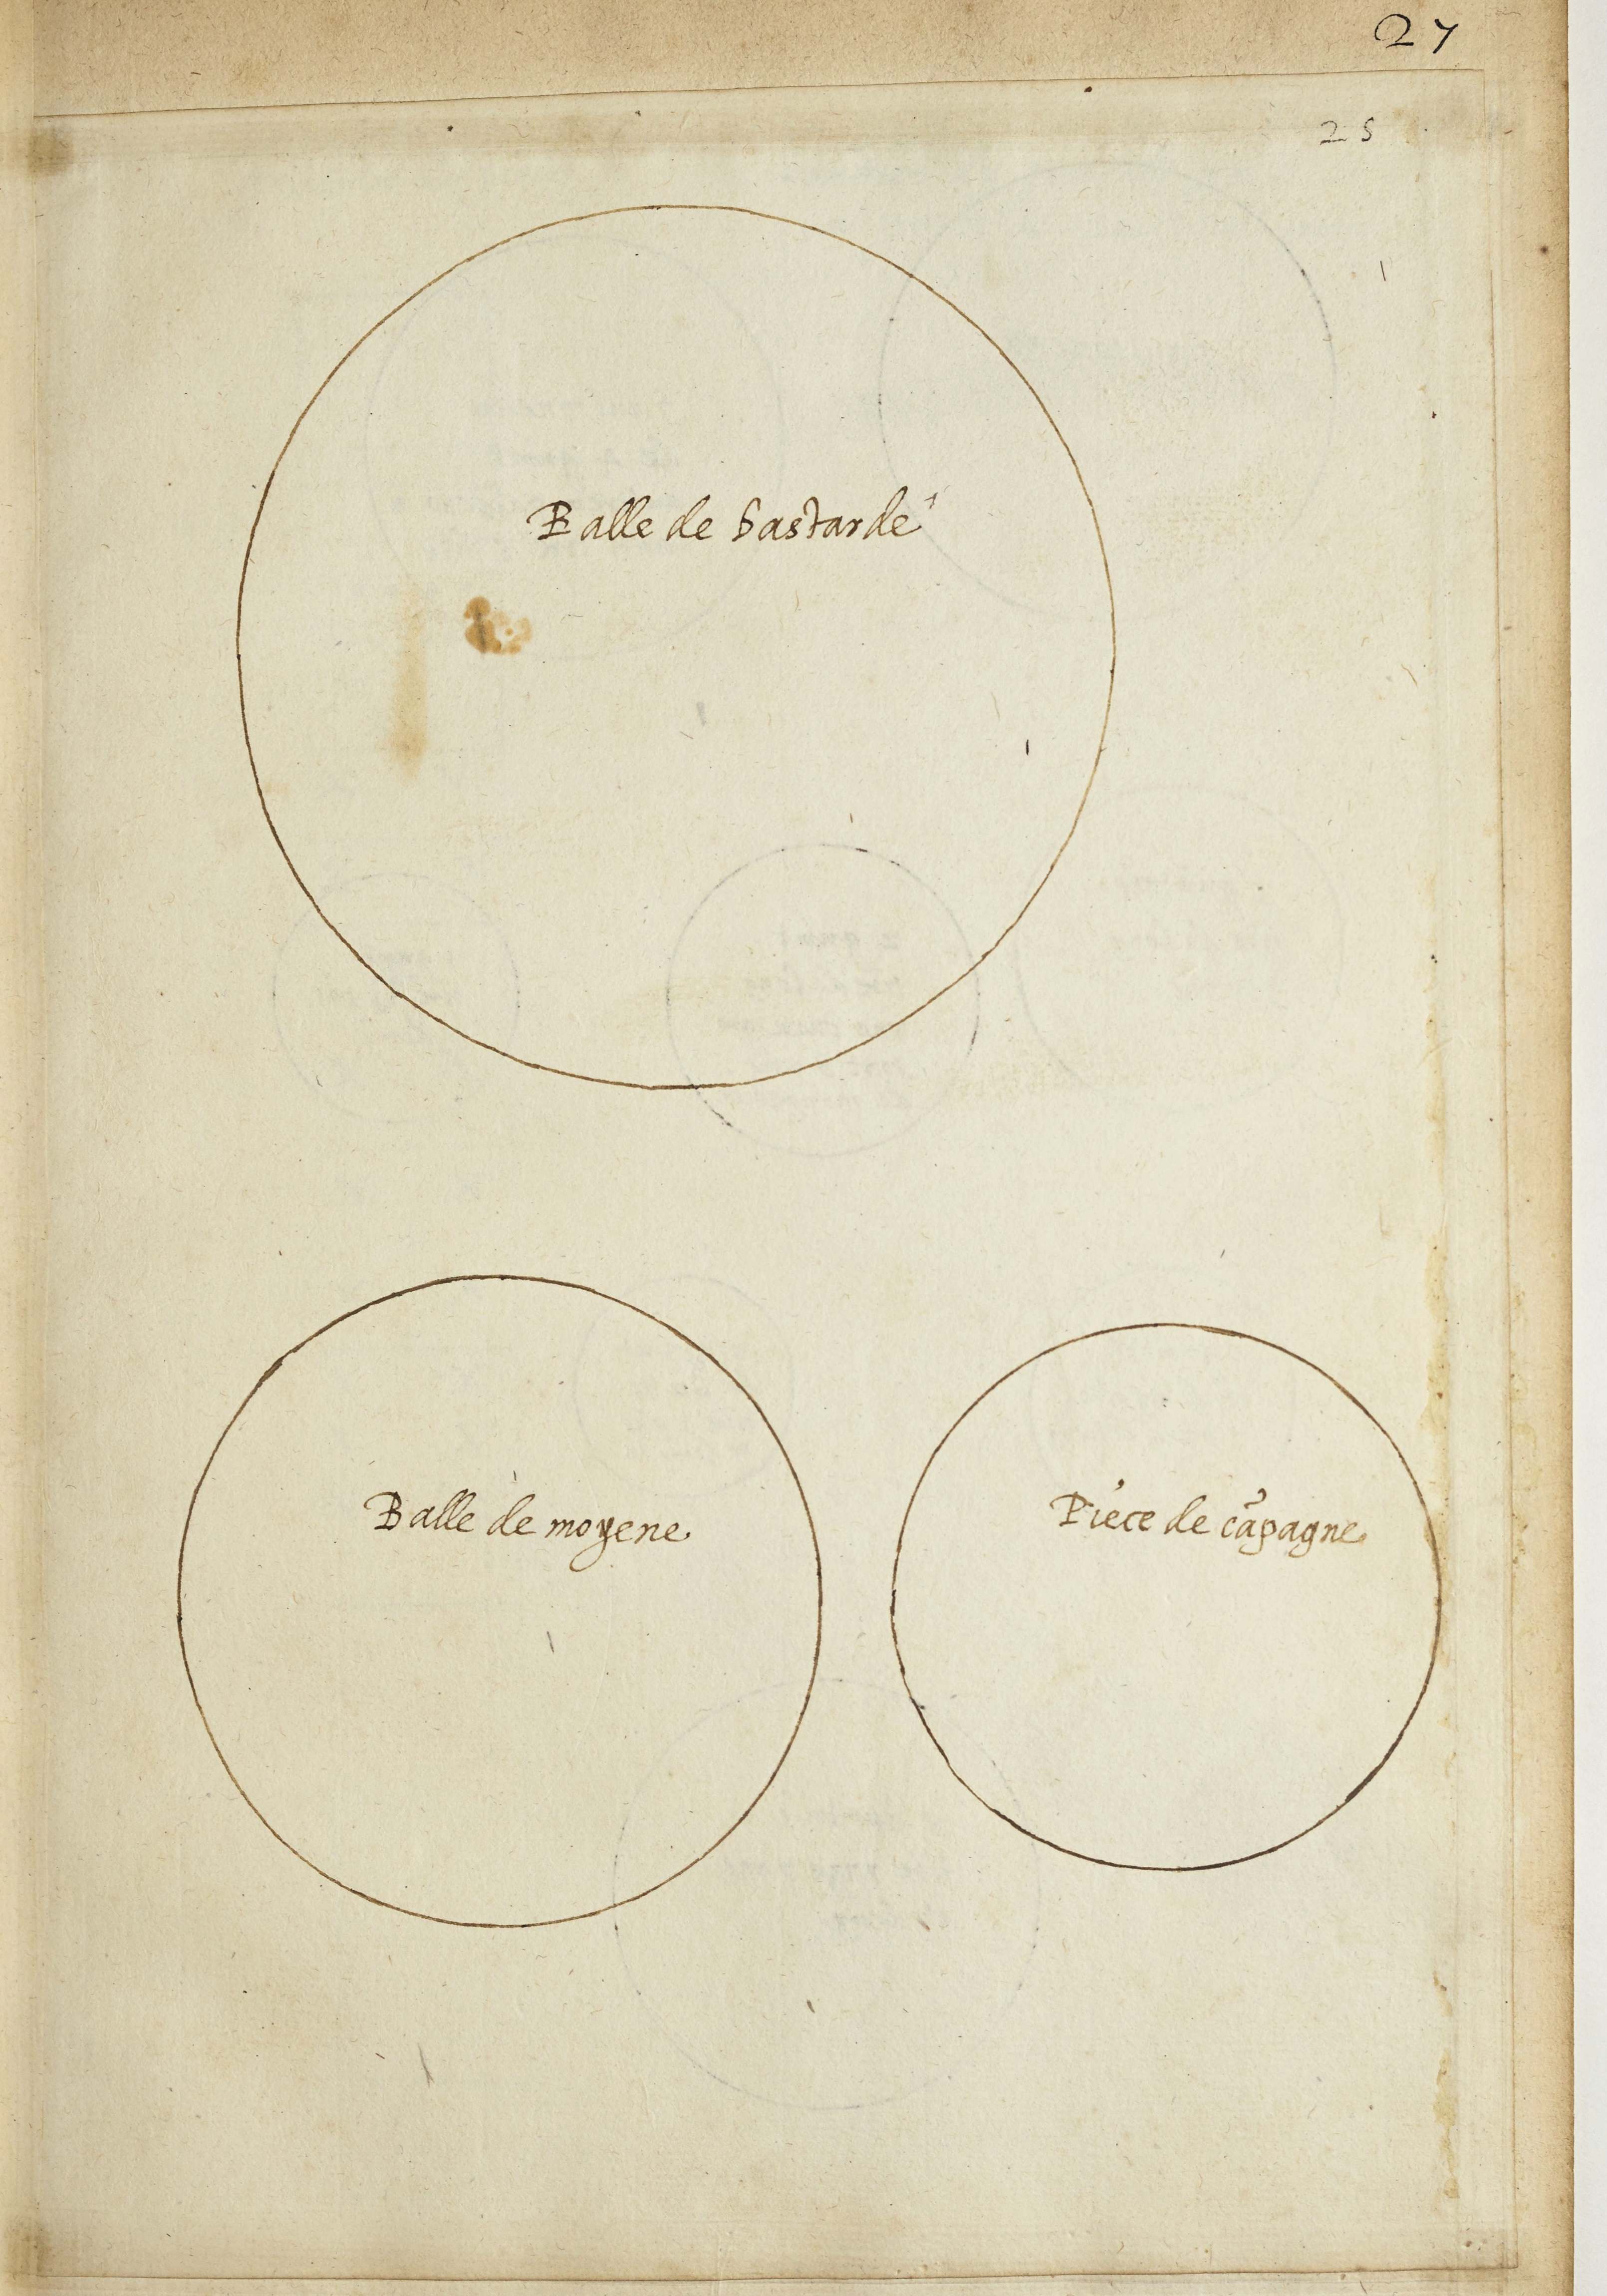 27
25
Balle de bastarde
Balle de moyene
Piece de cãpagne